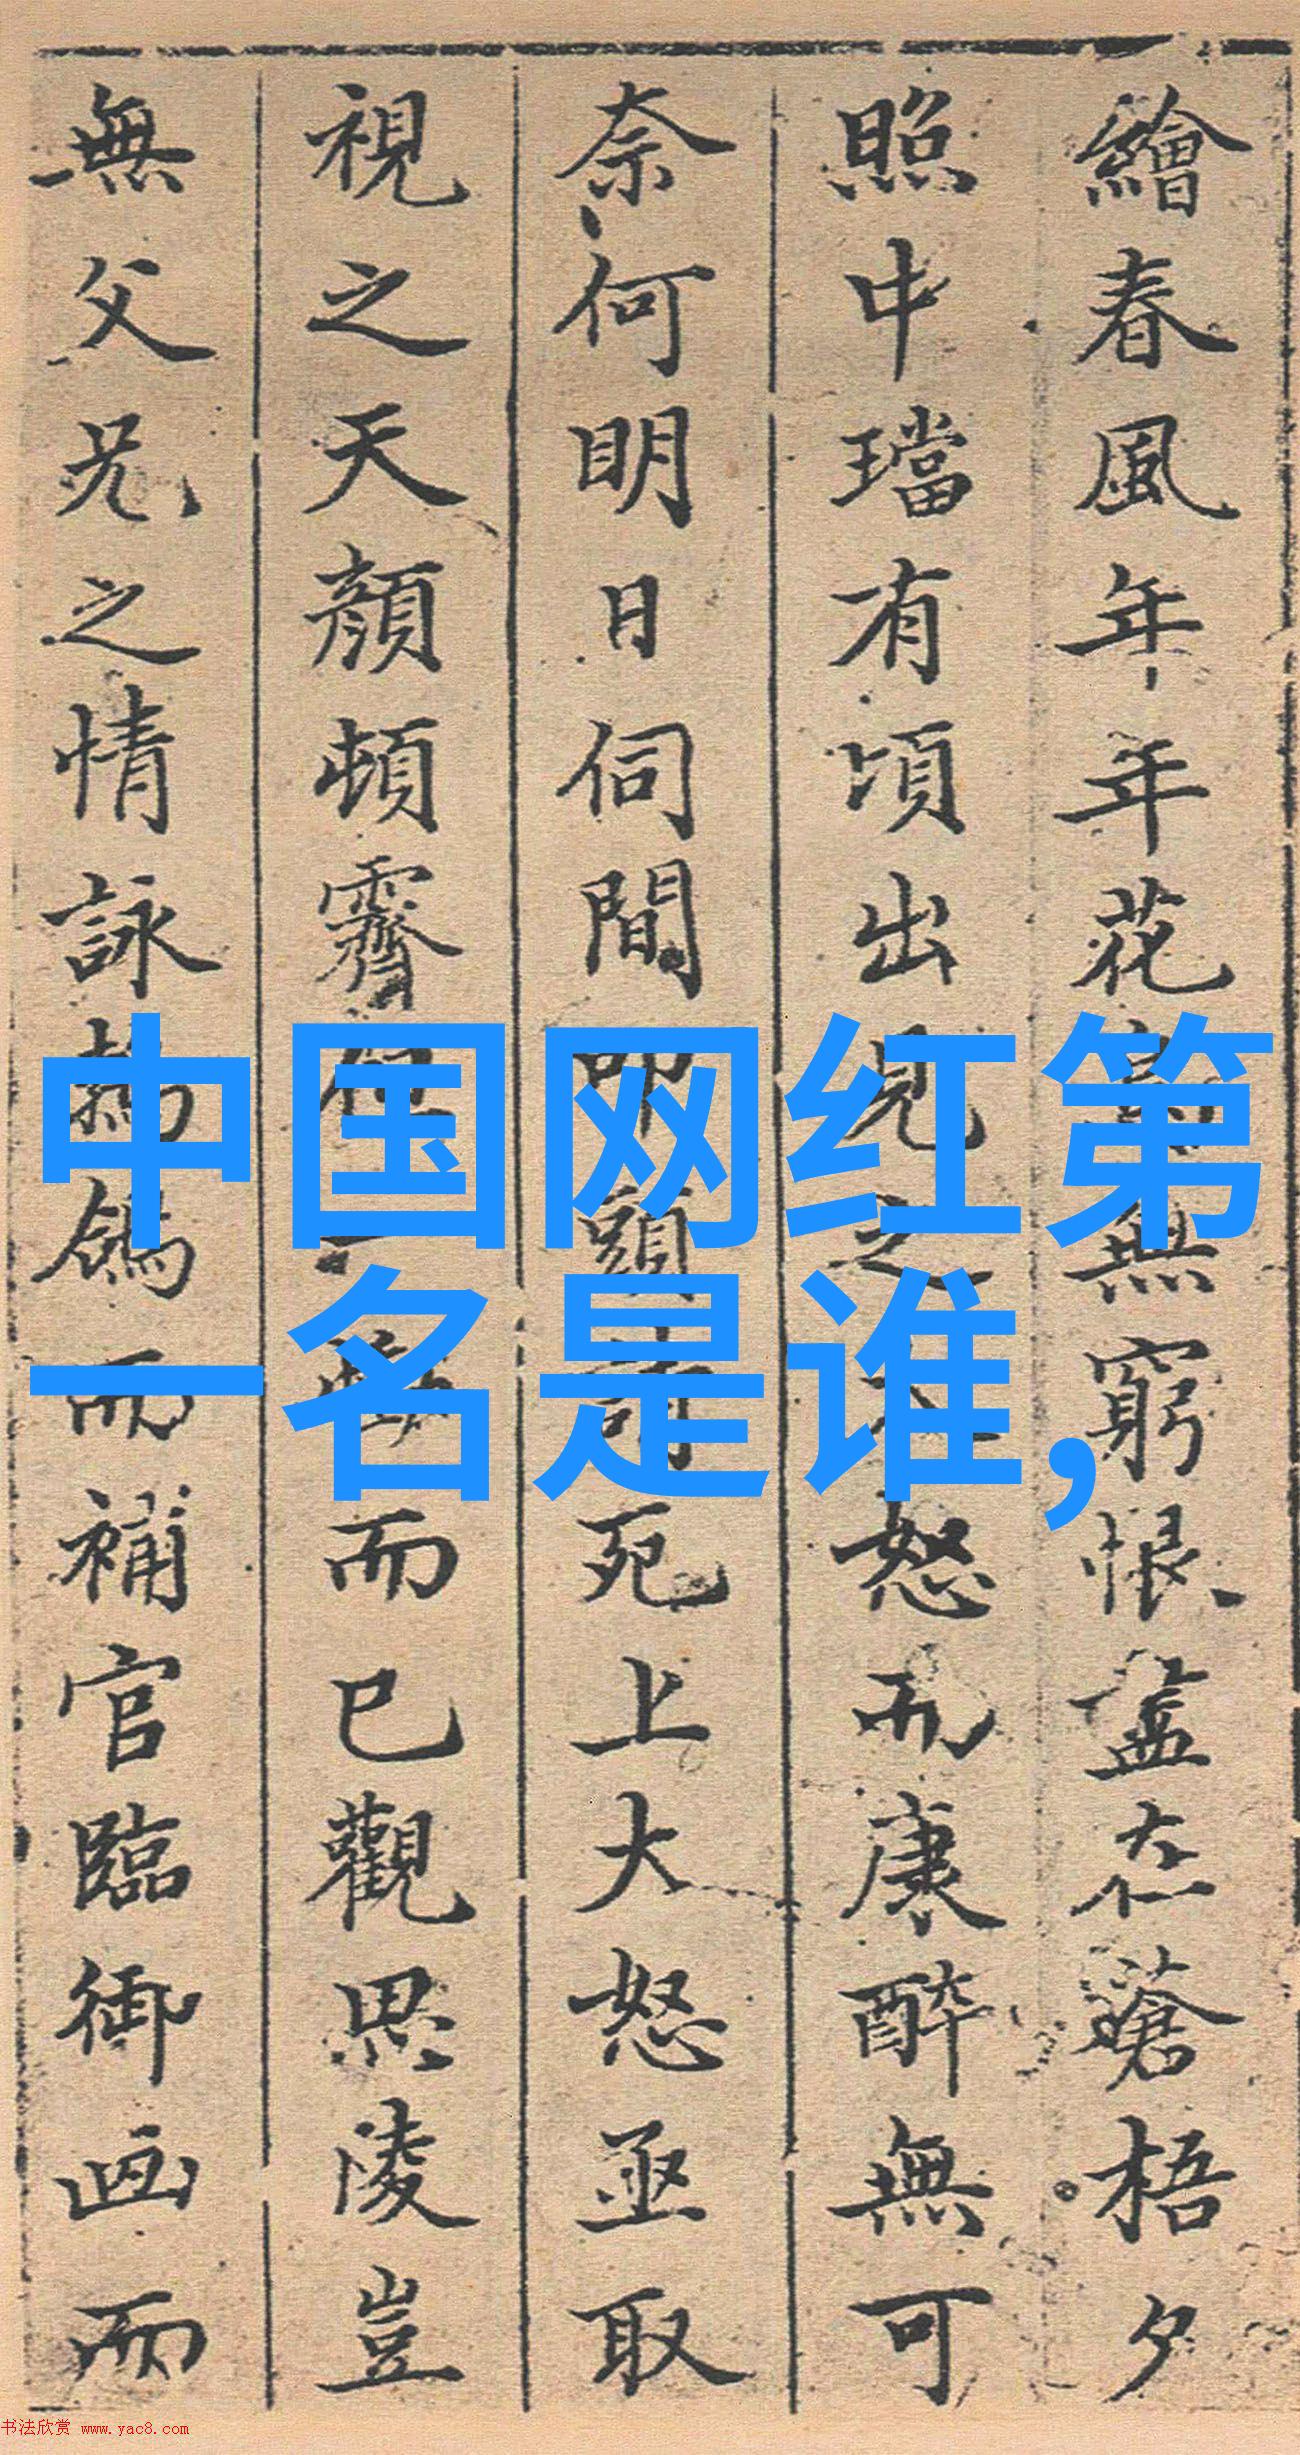 繪春風年年花無窮恨盡在蒼梧夕
照中璫有頃出見之怒而康醉無可
奈何明日伺間叩頭死上大怒亟取
視之天顔頓霽而已觀思陵豈
無父兄之情詠鶺鴒而補官臨御画而
中国网红第
一名是谁,
书法欣赏 www.yac8.com